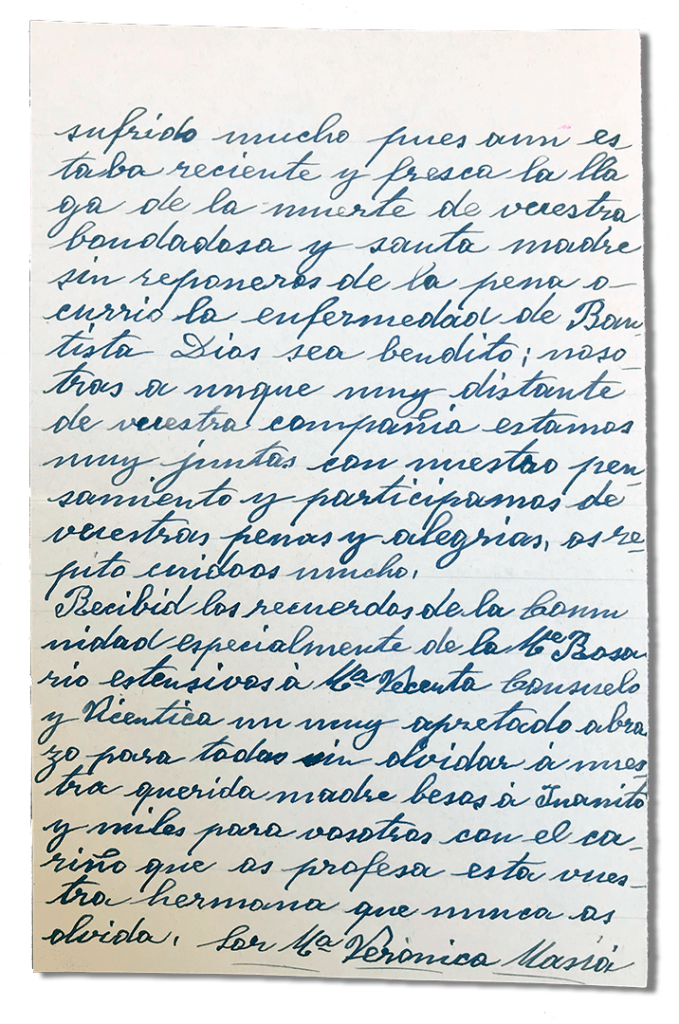 sufrido mucho pues aun es-
taba reciente y fresca la lla
ga de la muerte de vuestra
bondadosa y santa madre
sin reponeros de la pena o-
currio la enfermedad de Bau-
tista Dios sea bendito; noso-
tras a unque muy distante
de vuestra compañia estamos
muy juntas con nuestro pen-
samiento y participamos de
vuestras penas y alegrias, os re-
pito cuidaos mucho.
Recibid los recuerdos de la Comu
nidad especialmente de la Me Rosa
rio estensivos à Mª Vecenta Consuelo
y Vicentica un muy apretado abra
zo para todas sin olvidar à nues-
tra querida madre besos à Juanito
y miles para vosotros con el ca-
riño que os profesa esta vues-
tra hermana que nunca os
olvida. Sor Mª Verónica Massiá